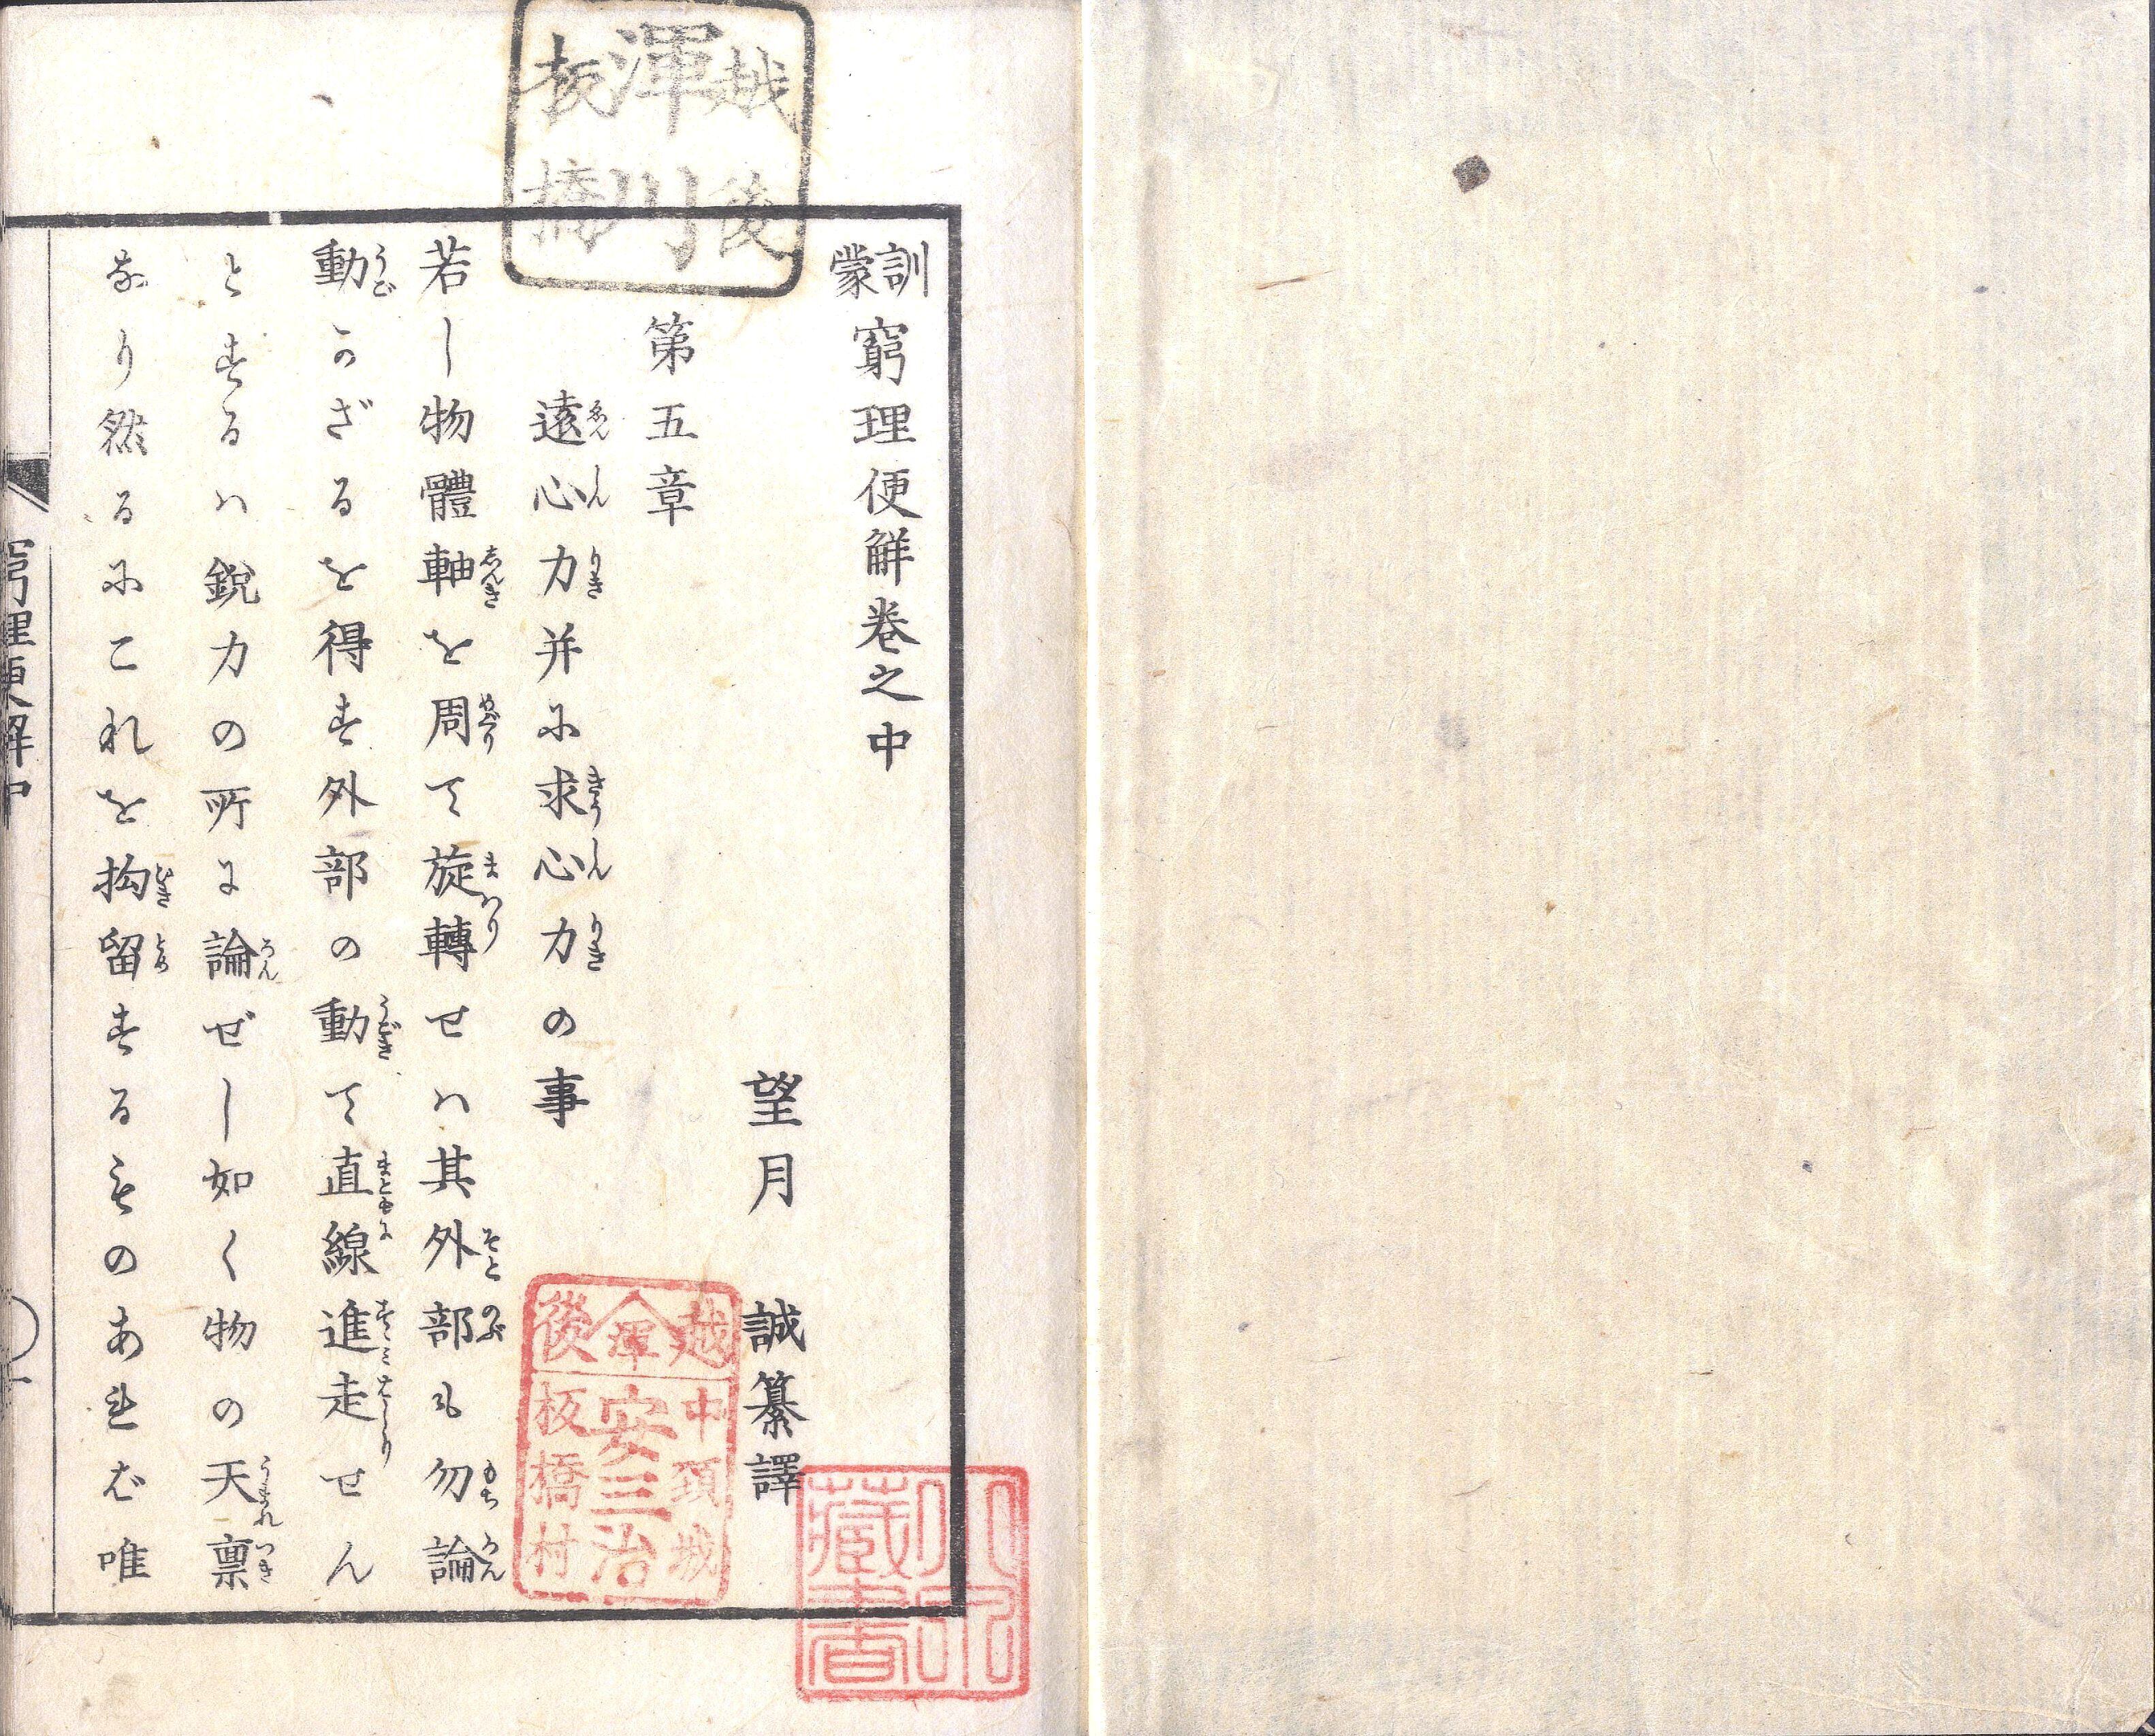 訓蒙 窮理便解卷之中
望月 誠纂譯
第五章
遠心力并に求心力の事
若し物體軸を周て旋轉せハ其外部も勿論
動かざるを得す外部の動て直線進走せん
とするハ銳力の所に論ぜし如く物の天禀
なり然るにこれを拘留するものあれば唯
越後
渾川
板橋
越 渾 後
中頚城
安三治
板橋村
藏書
窮理便解中
一